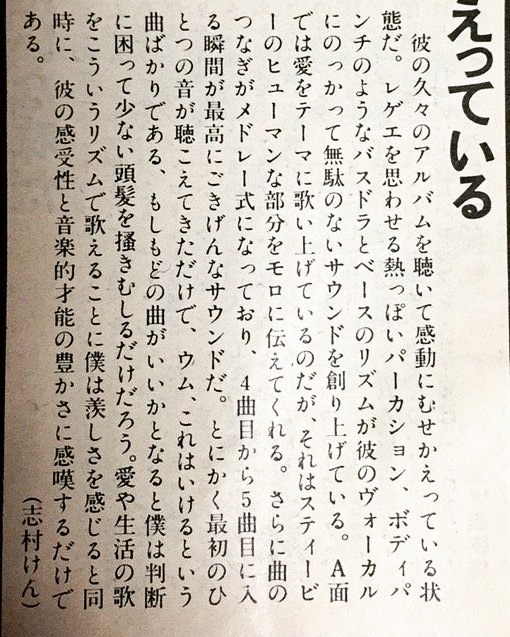 えっている
彼の久々のアルバムを聴いて感動にむせかえっている状
態だ。レゲエを思わせる熱っぽいパーカション、ボディパ
ンチのようなバスドラとベースのリズムが彼のヴォーカル
にのっかって無駄のないサウンドを創り上げている。A面
では愛をテーマに歌い上げているのだが、それはスティービ
ーのヒューマンな部分をモロに伝えてくれる。さらに曲の
つなぎがメドレー式になっており、4曲目から5曲目に入
る瞬間が最高にごきげんなサウンドだ。とにかく最初のひ
とつの音が聴こえてきただけで、ウム、これはいけるという
曲ばかりである、もしもどの曲がいいかとなると僕は判断
に困って少ない頭髪を掻きむしるだけだろう。愛や生活の歌
をこういうリズムで歌えることに僕は羨しさを感じると同
時に、彼の感受性と音楽的才能の豊かさに感嘆するだけで
ある。
(志村けん)